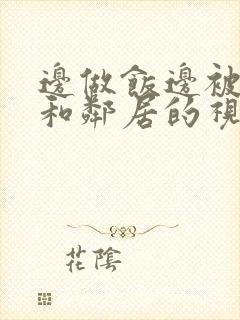 邊做飯邊被
和鄰居的視
花陰